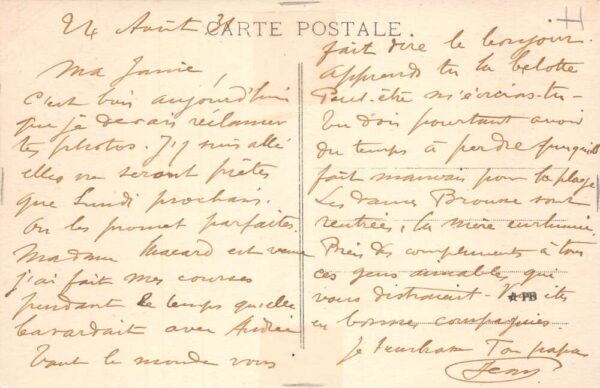 24 Août 31
CARTE POSTALE
Ma Janie,
C'est bien aujourd'hui
que je devais réclamer
tes photos. J'y suis allé
elles ne seront prêtes
que Lundi prochain.
On les promet parfaites.
Madame Macard est venue
j'ai fait mes courses
pendant le temps qu'elle
bavardait avec
Tout le monde vous
fait dire le bonjour.
Apprends tu la belotte
Peut-être m'écriras-tu
tu dois pourtant avoir
du temps à perdre puisqu'il
fait mauvais pour la plage
Les dames sont
rentrées, la mère enrhumée.
Bien des compliments à tous
ces gens aimables qui
vous distraient
APB
en bonnes compagnies
Je t'embrasse Ton papa